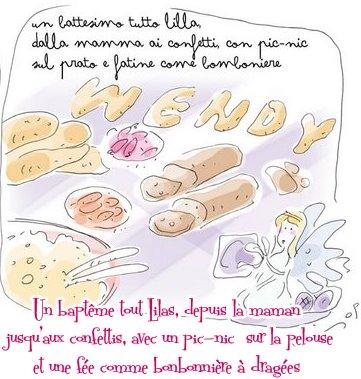 un battesimo tutto lilla,
dalla mamma ai confetti, con pic-nic
sul prato e fatine come bomboniere
WENDY
Un baptême tout Lilas, depuis la maman
jusqu'aux confettis, avec un pic-nic sur la pelouse
et une fée comme bonbonnière à dragées